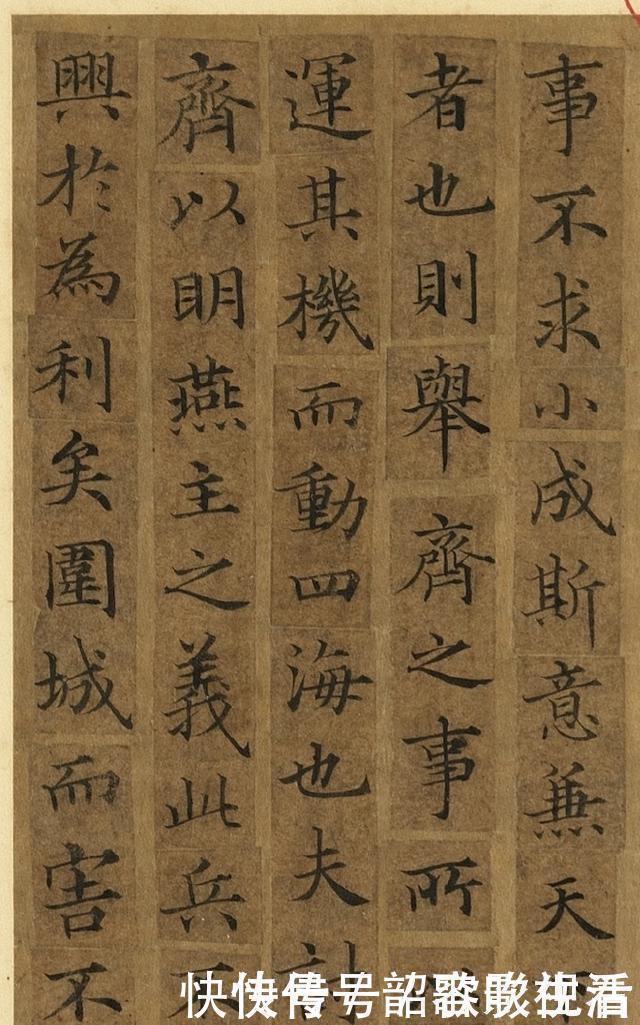 事不求小成斯意兼天
者也則舉齊之事所
運其機而動四海也夫
齊以明燕主之義此兵
興於為利矣圍城而害不